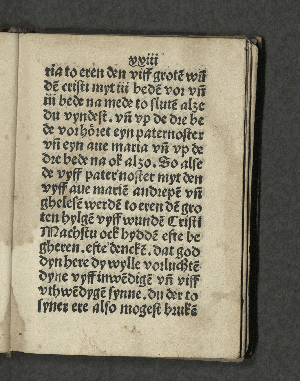 xviii
ria to eren den viff grotē wū
dē cristi myt iii bedē vor vñ
iii bede na mede to slutē alze
du vyndest. vñ vp de dre be
de vor höret eyn paternoster
vñ eyn aue maria vñ vp de
dre bede na ok alzo. So alse
de vyff paternoster myt den
vyff aue mariē andrepē vñ
ghelesē werdē to eren dē gro
ten hylgē vyff wundē Cristi
Machstu ock byddē efte be
gheren. efte denckē. dat god
dyn here dy wylle vorluchtē
dyne vyff inwēdigē vñ viff
vthwēdygē synne. du der to
syner ere also mogest brukē